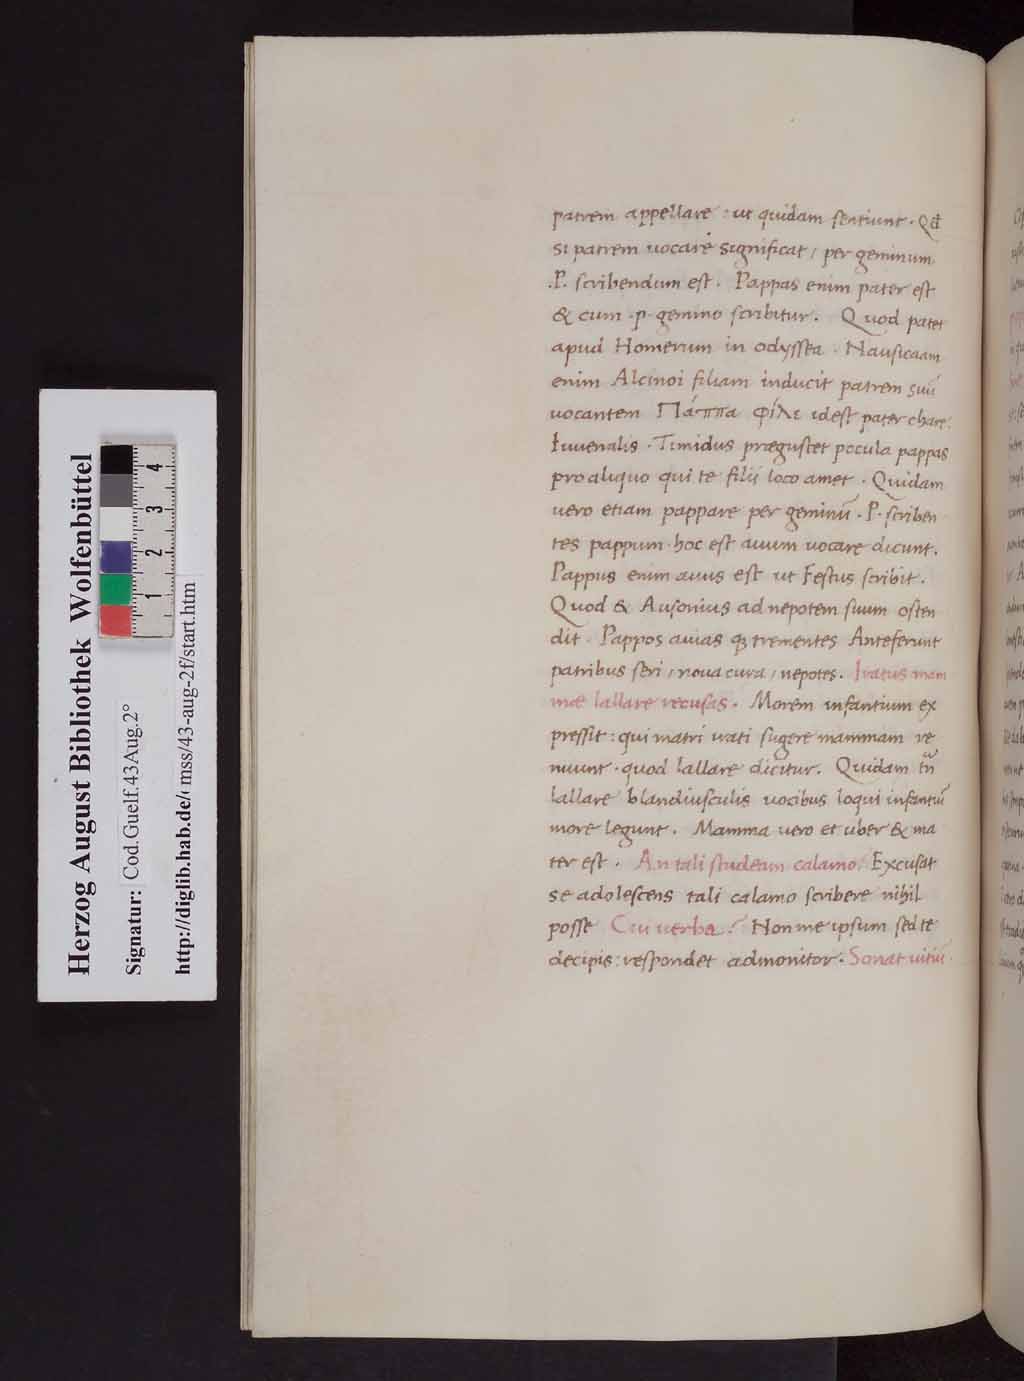 patrem appellare : ut quidam sentiunt . Qđ
si patrem uocare significat / per geminum
.P. scribendum est . Pappas enim pater est
& cum .p. gemino scribitur . Quod patet
apud Homerum in odyssea . Nausicaam
enim Alcinoi filiam inducit patrem suū
uocantem Πάππα φίλε idest pater chare:
Iuuenalis . Timidus prægustet pocula pappas
pro aliquo qui te filii loco amet . Quidam
uero etiam pappare per geminū .P. scriben
tes pappum . hoc est auum uocare dicunt .
Pappus enim auus est ut Festus scribit .
Quod & Ausonius ad nepotem suum osten
dit . Pappos auias q3 trementes Anteferunt
patribus seri / noua cura / nepotes . Iratus mam
mæ lallare recusas . Morem infantium ex
pressit : qui matri irati sugere mammam re
nuunt . quod lallare dicitur . Quidam tn̄
lallare blandiusculis uocibus loqui infantiū
more legunt . Mamma uero et uber & ma
ter est . An tali studeam calamo . Excusat
se adolescens tali calamo scribere nihil
posse Cui uerba ? Non me ipsum sed te
decipis : respondet admonitor . Sonat uitiū
Herzog August Bibliothek Wolfenbüttel
Signatur: Cod.Guelf.43Aug.2°
http://diglib.hab.de/ mss/43-aug-2f/start.htm
1 2 3 4